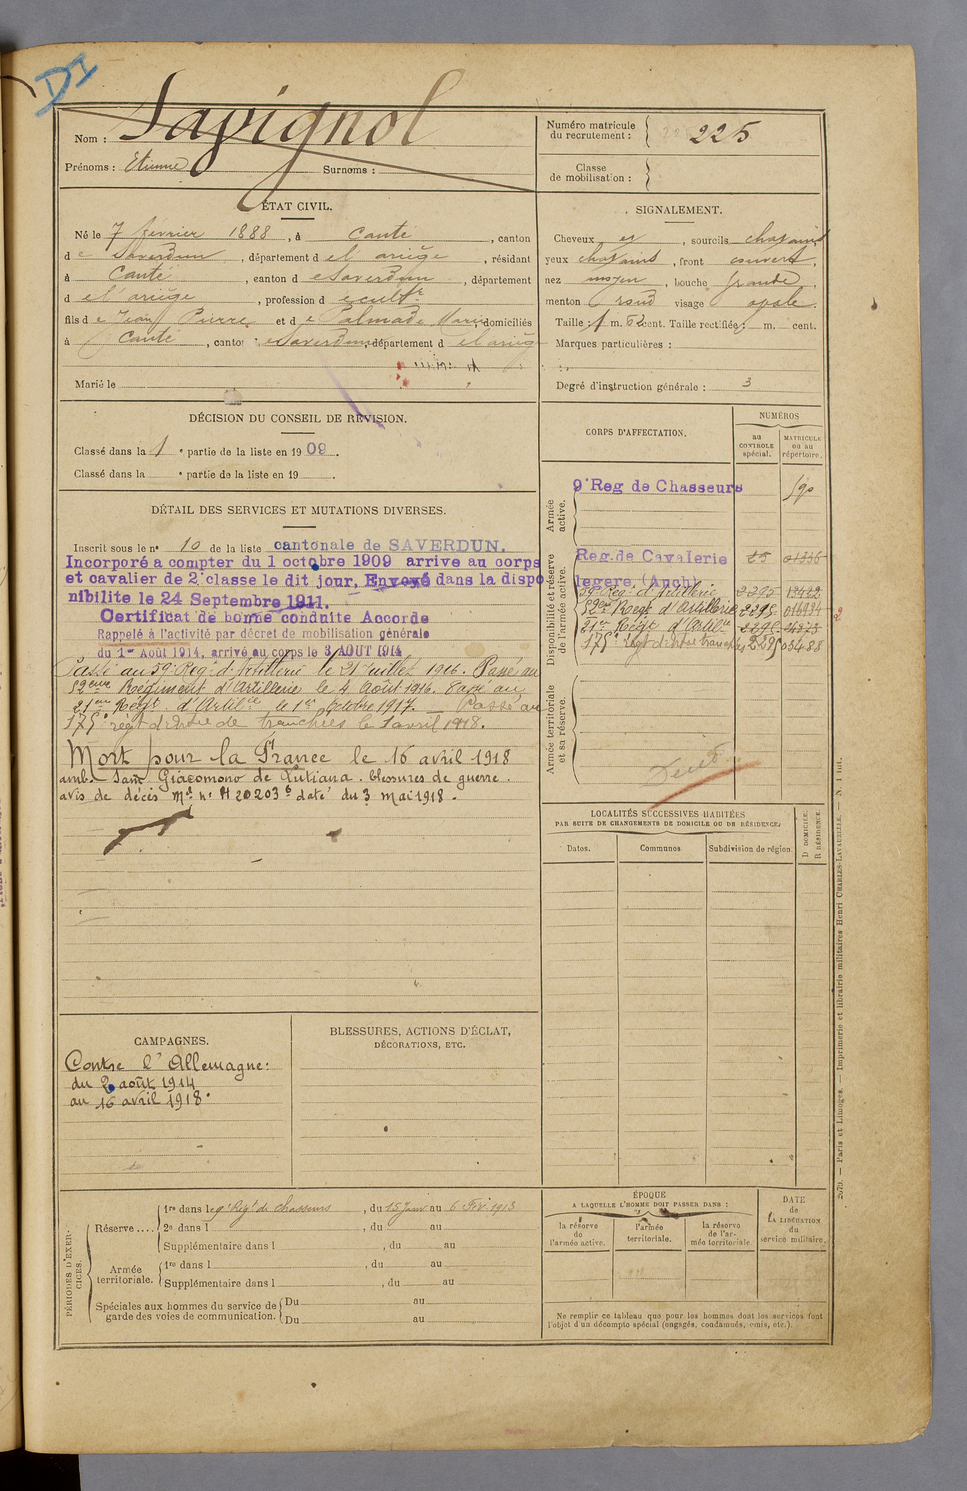 DI
Nom : Savignol
Prénoms : Etienne Surnoms :
Numéro matricule du recrutement : 225
Classe de mobilisation :
ÉTAT CIVIL.
Né le 7 février 1888, à Canté, canton
de Saverdun, département de l'ariège, résidant
à Canté, canton de Saverdun, département
de l'ariège, profession de cult.r
fils de Jean Pierre et de Palmade Marie, domiciliés
à Canté, canton de Saverdun, département de l'ariège
Marié le
SIGNALEMENT.
Cheveux et, sourcils chatains
yeux chatains, front couvert,
nez moyen, bouche grande,
menton rond visage ovale.
Taille : 1 m. 62 cent. Taille rectifiée : m. cent.
Marques particulières :
Degré d'instruction générale : 3
DÉCISION DU CONSEIL DE RÉVISION.
Classé dans la 1e partie de la liste en 1909.
Classé dans la e partie de la liste en 19 .
DÉTAIL DES SERVICES ET MUTATIONS DIVERSES.
Inscrit sous le no 10 de la liste cantonale de SAVERDUN.
Incorporé a compter du 1 octobre 1909 arrive au corps
et cavalier de 2e classe le dit jour. Envoyé dans la dispo
nibilite le 24 Septembre 1911.
Certificat de bonne conduite Accorde
Rappelé à l'activité par décret de mobilisation générale
du 1er Août 1914, arrivé au corps le 3 AOUT 1914
Passé au 59e Reg.t d'Artillerie le 21 Juillet 1916. Passé au
52ème Régiment d'Artillerie le 4 Août 1916. Passé au
21er Régt d'Artil.ie le 1er Octobre 1917. _ Passé au
175e régt d'Artie de tranchées le 1 avril 1918.
Mort pour la France le 16 avril 1918
amb. San Giacomono de Lutiana. blessures de guerre.
avis de décès Ml no H 20203b daté du 3 mai 1918.
CORPS D'AFFECTATION.
NUMÉROS
au CONTROLE spécial.
MATRICULE ou au répertoire.
Armée active.
9e Reg de Chasseurs
Disponibilité et réserve de l'armée active.
Reg. de Cavalerie
legere. (Auch)
59e Reg.t d'Artillerie 2295
52ème Regt d'Artillerie 2295
21er Régt d'Artil.ie 2295
175e régt d'Artie tranchées 2295 05488
Armée territoriale et sa réserve.
LOCALITÉS SUCCESSIVES HABITÉES
PAR SUITE DE CHANGEMENTS DE DOMICILE OU DE RÉSIDENCE.
Dates. Communes. Subdivision de région.
D DOMICILE. R RÉSIDENCE.
CAMPAGNES.
Contre l'Allemagne :
du 2 août 1914
au 16 avril 1918.
BLESSURES, ACTIONS D'ÉCLAT,
DÉCORATIONS, ETC.
PÉRIODES D'EXERCICES.
Réserve ....
1re dans le 9e Regt de Chasseurs, du 15 Janv au 6 Fév. 1913
2e dans l , du au
Supplémentaire dans l , du au
Armée territoriale.
1re dans l , du au
Supplémentaire dans l , du au
Spéciales aux hommes du service de garde des voies de communication.
Du au
Du au
ÉPOQUE
A LAQUELLE L'HOMME DOIT PASSER DANS :
la réserve de l'armée active.
l'armée territoriale.
la réserve de l'armée territoriale.
DATE DE LA LIBÉRATION du service militaire.
Ne remplir ce tableau que pour les hommes dont les services font
l'objet d'un décompte spécial (engagés, condamnés, omis, etc.).
2679. — Paris et Limoges. — Imprimerie et librairie militaires Henri CHARLES-LAVAUZELLE. — N. 1 bis.